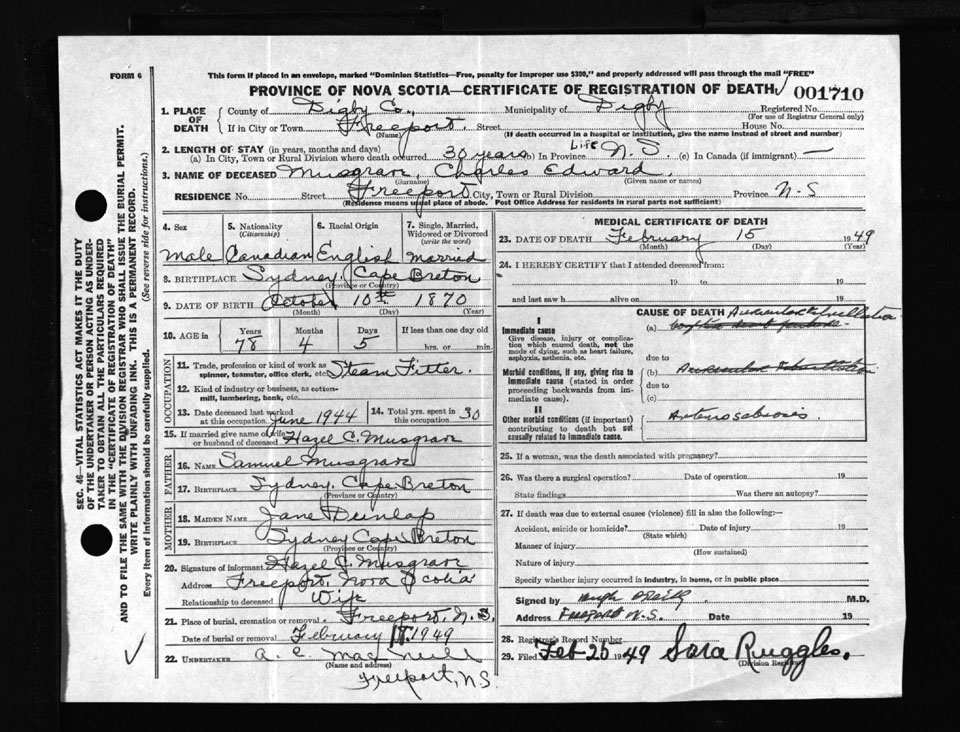 FORM 6
This form if placed in an envelope, marked "Dominion Statistics—Free, penalty for improper use $300," and properly addressed will pass through the mail "FREE"
PROVINCE OF NOVA SCOTIA—CERTIFICATE OF REGISTRATION OF DEATH 001710
1. PLACE OF DEATH
County of Digby Co., Municipality of Digby Registered No.
(For use of Registrar General only)
If in City or Town Freeport. Street House No.
(Name) (If death occurred in a hospital or institution, give the name instead of street and number)
2. LENGTH OF STAY (in years, months and days)
(a) In City, Town or Rural Division where death occurred 30 years (b) In Province Life N.S. (c) In Canada (if immigrant) —
3. NAME OF DECEASED Musgrave, Charles Edward.
(Surname) (Given name or names)
RESIDENCE No. Street Freeport City, Town or Rural Division Province N-S
(Residence means usual place of abode. Post Office Address for residents in rural parts not sufficient)
4. Sex 5. Nationality (Citizenship) 6. Racial Origin 7. Single, Married, Widowed or Divorced (write the word)
Male Canadian English Married
8. BIRTHPLACE Sydney, Cape Breton
(Province or Country)
9. DATE OF BIRTH October 10th 1870
(Month) (Day) (Year)
10. AGE in Years Months Days If less than one day old
78 4 5 hrs. or min.
OCCUPATION
11. Trade, profession or kind of work as spinner, teamster, office clerk, etc. Steam Fitter.
12. Kind of industry or business, as cotton-mill, lumbering, bank, etc.
13. Date deceased last worked at this occupation June 1944 14. Total yrs. spent in this occupation 30
15. If married give name of wife or husband of deceased Hazel C. Musgrave
FATHER
16. NAME Samuel Musgrave
17. BIRTHPLACE Sydney, Cape Breton
(Province or Country)
MOTHER
18. MAIDEN NAME Jane Dunlap
19. BIRTHPLACE Sydney Cape Breton
(Province or Country)
20. Signature of informant Hazel C. Musgrave
Address Freeport, Nova Scotia
Relationship to deceased Wife
21. Place of burial, cremation or removal Freeport, N.S.
Date of burial or removal February 1949
22. UNDERTAKER A. E. MacNeill
(Name and address)
Freeport, N.S.
MEDICAL CERTIFICATE OF DEATH
23. DATE OF DEATH February 15 1949
(Month) (Day) (Year)
24. I HEREBY CERTIFY that I attended deceased from:
19 to 19
and last saw h alive on 19
CAUSE OF DEATH
I
Immediate cause (a) Auricular Fibrillation
Give disease, injury or complication which caused death, not the mode of dying, such as heart failure, asphyxia, asthenia, etc.
due to
Morbid conditions, if any, giving rise to immediate cause (stated in order proceeding backwards from immediate cause).
(b) Auricular Fibrillation
due to
(c)
II
Other morbid conditions (if important) contributing to death but not causally related to immediate cause.
25. If a woman, was the death associated with pregnancy?
26. Was there a surgical operation? Date of operation 19
State findings Was there an autopsy?
27. If death was due to external causes (violence) fill in also the following:—
Accident, suicide or homicide? Date of injury 19
(State which)
Manner of injury
(How sustained)
Nature of injury
Specify whether injury occurred in industry, in home, or in public place
Signed by Hugh M.D.
Address Freeport N.S. Date 19
28. Registrar's Record Number
29. Filed Feb-25 1949 Sara Ruggles.
(Division Registrar)
SEC. 46—VITAL STATISTICS ACT MAKES IT THE DUTY
OF THE UNDERTAKER OR PERSON ACTING AS UNDER-
TAKER TO OBTAIN ALL THE PARTICULARS REQUIRED
IN THE "CERTIFICATE OF REGISTRATION OF DEATH"
AND TO FILE THE SAME WITH THE DIVISION REGISTRAR WHO SHALL ISSUE THE BURIAL PERMIT.
WRITE PLAINLY WITH UNFADING INK. THIS IS A PERMANENT RECORD.
Every item of Information should be carefully supplied. (See reverse side for instructions.)